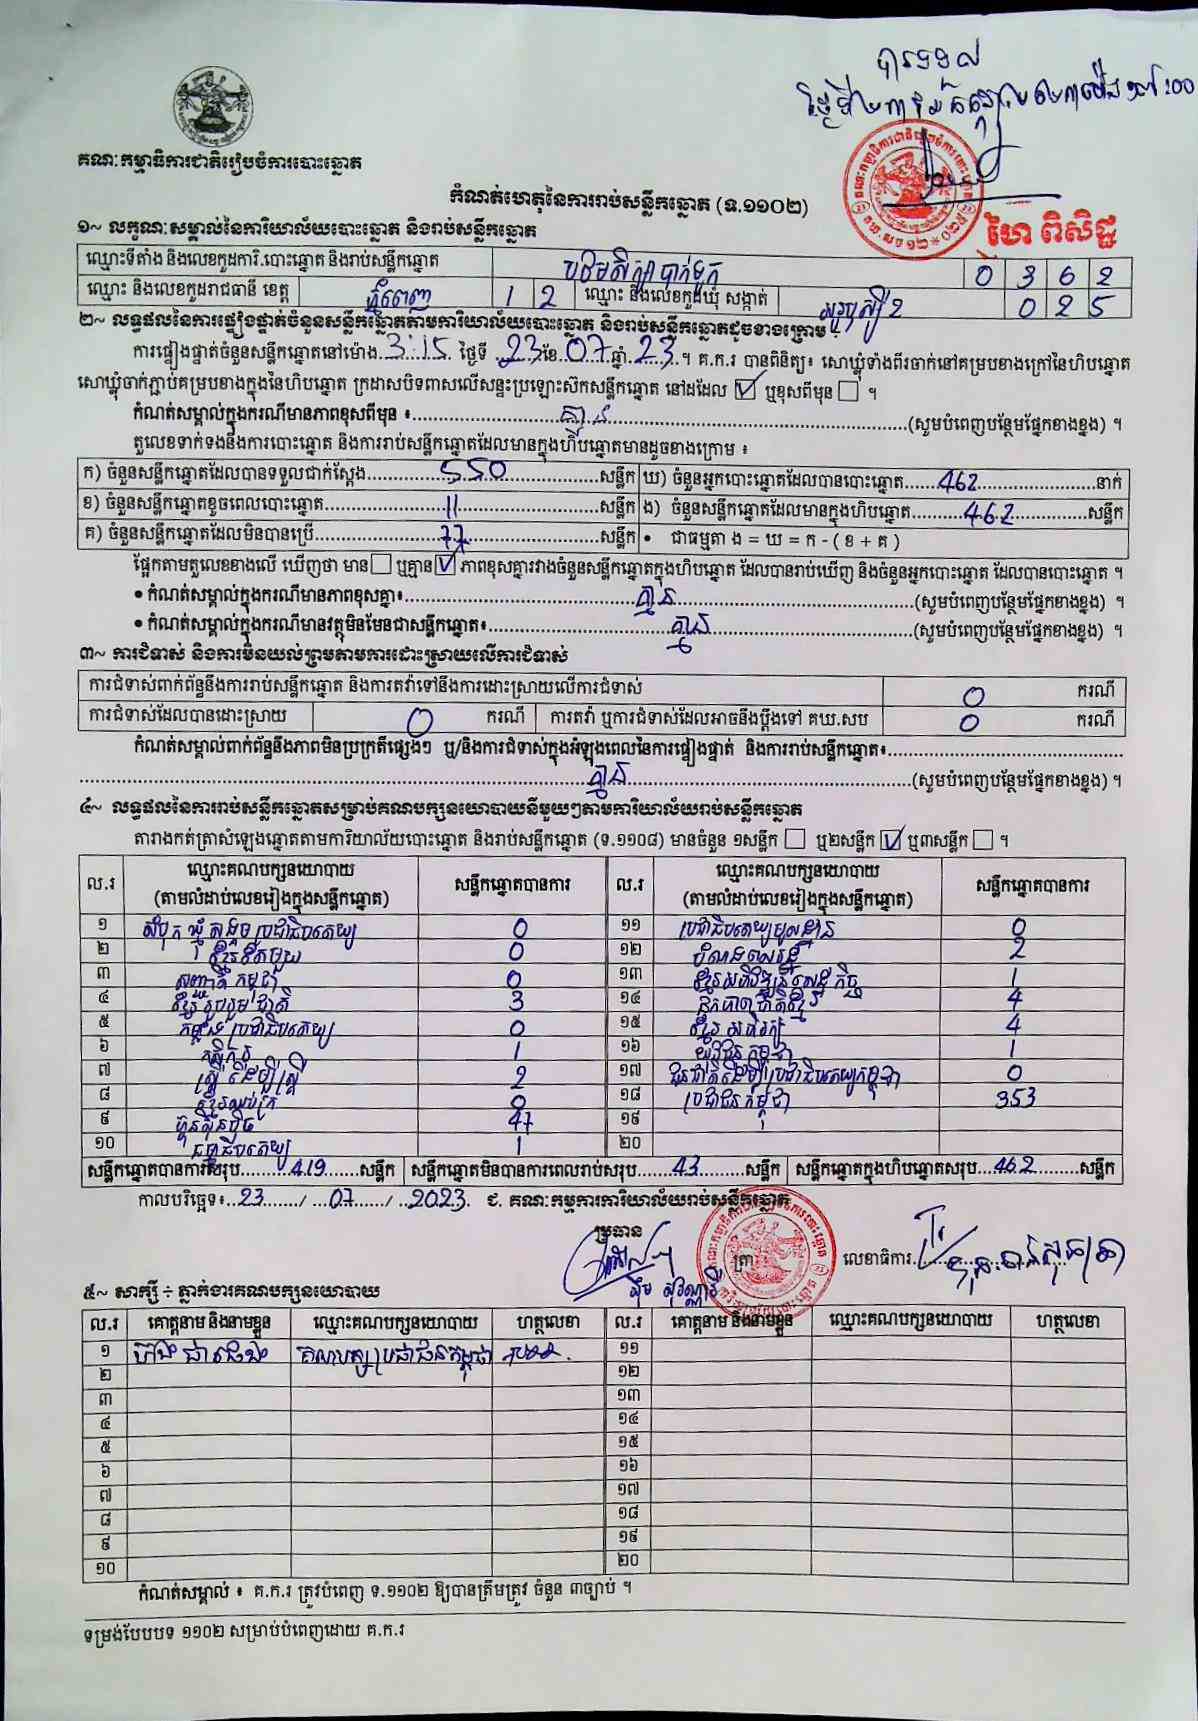 បានទទួល
គណៈកម្មាធិការជាតិរៀបចំការបោះឆ្នោត
កំណត់ហេតុនៃការរាប់សន្លឹកឆ្នោត (ទ.១១០២)
ហៃ ពិសិដ្ឋ
១~ លក្ខណៈសម្គាល់នៃការិយាល័យបោះឆ្នោត និងរាប់សន្លឹកឆ្នោត
ឈ្មោះទីតាំង និងលេខកូដការិ.បោះឆ្នោត និងរាប់សន្លឹកឆ្នោត បឋមសិក្សាបាក់ទូក 0 3 6 2
ឈ្មោះ និងលេខកូដរាជធានី ខេត្ត ភ្នំពេញ 1 2 ឈ្មោះ និងលេខកូដឃុំ សង្កាត់ 0 2 5
២~ លទ្ធផលនៃការផ្ទៀងផ្ទាត់ចំនួនសន្លឹកឆ្នោតតាមការិយាល័យបោះឆ្នោត និងរាប់សន្លឹកឆ្នោតដូចខាងក្រោម
ការផ្ទៀងផ្ទាត់ចំនួនសន្លឹកឆ្នោតនៅម៉ោង 3:15 ថ្ងៃទី 23 ខែ 07 ឆ្នាំ 23 ។ គ.ក.រ បានពិនិត្យ៖ សោឃ្លុំទាំងពីរចាក់នៅគម្របខាងក្រៅនៃហិបឆ្នោត
សោឃ្លុំចាក់ភ្ជាប់គម្របខាងក្នុងនៃហិបឆ្នោត ក្រដាសបិទពាសលើសន្ទះប្រឡោះស៊កសន្លឹកឆ្នោត នៅដដែល ☑ ឬខុសពីមុន ☐ ។
កំណត់សម្គាល់ក្នុងករណីមានភាពខុសពីមុន ៖ គ្មាន (សូមបំពេញបន្ថែមផ្នែកខាងខ្នង) ។
តួលេខទាក់ទងនឹងការបោះឆ្នោត និងការរាប់សន្លឹកឆ្នោតដែលមានក្នុងហិបឆ្នោតមានដូចខាងក្រោម ៖
ក) ចំនួនសន្លឹកឆ្នោតដែលបានទទួលជាក់ស្តែង 550 សន្លឹក ឃ) ចំនួនអ្នកបោះឆ្នោតដែលបានបោះឆ្នោត 462 នាក់
ខ) ចំនួនសន្លឹកឆ្នោតខូចពេលបោះឆ្នោត 11 សន្លឹក ង) ចំនួនសន្លឹកឆ្នោតដែលមានក្នុងហិបឆ្នោត 462 សន្លឹក
គ) ចំនួនសន្លឹកឆ្នោតដែលមិនបានប្រើ 77 សន្លឹក • ជាធម្មតា ង = ឃ = ក - ( ខ + គ )
ផ្អែកតាមតួលេខខាងលើ ឃើញថា មាន ☐ ឬគ្មាន ☑ ភាពខុសគ្នារវាងចំនួនសន្លឹកឆ្នោតក្នុងហិបឆ្នោត ដែលបានរាប់ឃើញ និងចំនួនអ្នកបោះឆ្នោត ដែលបានបោះឆ្នោត ។
• កំណត់សម្គាល់ក្នុងករណីមានភាពខុសគ្នា៖ គ្មាន (សូមបំពេញបន្ថែមផ្នែកខាងខ្នង) ។
• កំណត់សម្គាល់ក្នុងករណីមានវត្ថុមិនមែនជាសន្លឹកឆ្នោត៖ គ្មាន (សូមបំពេញបន្ថែមផ្នែកខាងខ្នង) ។
៣~ ការជំទាស់ និងការមិនយល់ព្រមតាមការដោះស្រាយលើការជំទាស់
ការជំទាស់ពាក់ព័ន្ធនឹងការរាប់សន្លឹកឆ្នោត និងការតវ៉ាទៅនឹងការដោះស្រាយលើការជំទាស់ 0 ករណី
ការជំទាស់ដែលបានដោះស្រាយ 0 ករណី ការតវ៉ា ឬការជំទាស់ដែលអាចនឹងប្តឹងទៅ គឃ.សប 0 ករណី
កំណត់សម្គាល់ពាក់ព័ន្ធនឹងភាពមិនប្រក្រតីផ្សេងៗ ឬ/និងការជំទាស់ក្នុងអំឡុងពេលនៃការផ្ទៀងផ្ទាត់ និងការរាប់សន្លឹកឆ្នោត៖
គ្មាន (សូមបំពេញបន្ថែមផ្នែកខាងខ្នង) ។
៤~ លទ្ធផលនៃការរាប់សន្លឹកឆ្នោតសម្រាប់គណបក្សនយោបាយនីមួយៗតាមការិយាល័យរាប់សន្លឹកឆ្នោត
តារាងកត់ត្រាសំឡេងឆ្នោតតាមការិយាល័យបោះឆ្នោត និងរាប់សន្លឹកឆ្នោត (ទ.១១០៨) មានចំនួន ១សន្លឹក ☐ ឬ២សន្លឹក ☑ ឬ៣សន្លឹក ☐ ។
ល.រ ឈ្មោះគណបក្សនយោបាយ (តាមលំដាប់លេខរៀងក្នុងសន្លឹកឆ្នោត) សន្លឹកឆ្នោតបានការ ល.រ ឈ្មោះគណបក្សនយោបាយ (តាមលំដាប់លេខរៀងក្នុងសន្លឹកឆ្នោត) សន្លឹកឆ្នោតបានការ
១ សំបុកឃ្មុំសង្គមប្រជាធិបតេយ្យ 0 ១១ ប្រជាធិបតេយ្យមូលដ្ឋាន 0
២ ខ្មែរតែមួយ 0 ១២ 2
៣ សញ្ជាតិកម្ពុជា 0 ១៣ ខ្មែរអភិវឌ្ឍន៍សេដ្ឋកិច្ច 1
៤ ខ្មែររួបរួមជាតិ 3 ១៤ ឯកភាពជាតិខ្មែរ 4
៥ កម្លាំងប្រជាធិបតេយ្យ 0 ១៥ ខ្មែរអភិរក្ស 4
៦ កសិករ 1 ១៦ យុវជនកម្ពុជា 1
៧ ស្ត្រីដើម្បីស្ត្រី 2 ១៧ ជនជាតិដើមប្រជាធិបតេយ្យកម្ពុជា 0
៨ ខ្មែរឈប់ក្រ 0 ១៨ ប្រជាជនកម្ពុជា 353
៩ ហ៊្វុនស៊ិនប៉ិច 47 ១៩
១០ ធម្មាធិបតេយ្យ 1 ២០
សន្លឹកឆ្នោតបានការសរុប 419 សន្លឹក សន្លឹកឆ្នោតមិនបានការពេលរាប់សរុប 43 សន្លឹក សន្លឹកឆ្នោតក្នុងហិបឆ្នោតសរុប 462 សន្លឹក
កាលបរិច្ឆេទ៖ 23 / 07 / 2023 ជ. គណៈកម្មការការិយាល័យរាប់សន្លឹកឆ្នោត
ប្រធាន ត្រា លេខាធិការ
៥~ សាក្សី ÷ ភ្នាក់ងារគណបក្សនយោបាយ
ល.រ គោត្តនាម និងនាមខ្លួន ឈ្មោះគណបក្សនយោបាយ ហត្ថលេខា ល.រ គោត្តនាម និងនាមខ្លួន ឈ្មោះគណបក្សនយោបាយ ហត្ថលេខា
១ គណបក្សប្រជាជនកម្ពុជា ១១
២ ១២
៣ ១៣
៤ ១៤
៥ ១៥
៦ ១៦
៧ ១៧
៨ ១៨
៩ ១៩
១០ ២០
កំណត់សម្គាល់ ៖ គ.ក.រ ត្រូវបំពេញ ទ.១១០២ ឱ្យបានត្រឹមត្រូវ ចំនួន ៣ច្បាប់ ។
ទម្រង់បែបបទ ១១០២ សម្រាប់បំពេញដោយ គ.ក.រ